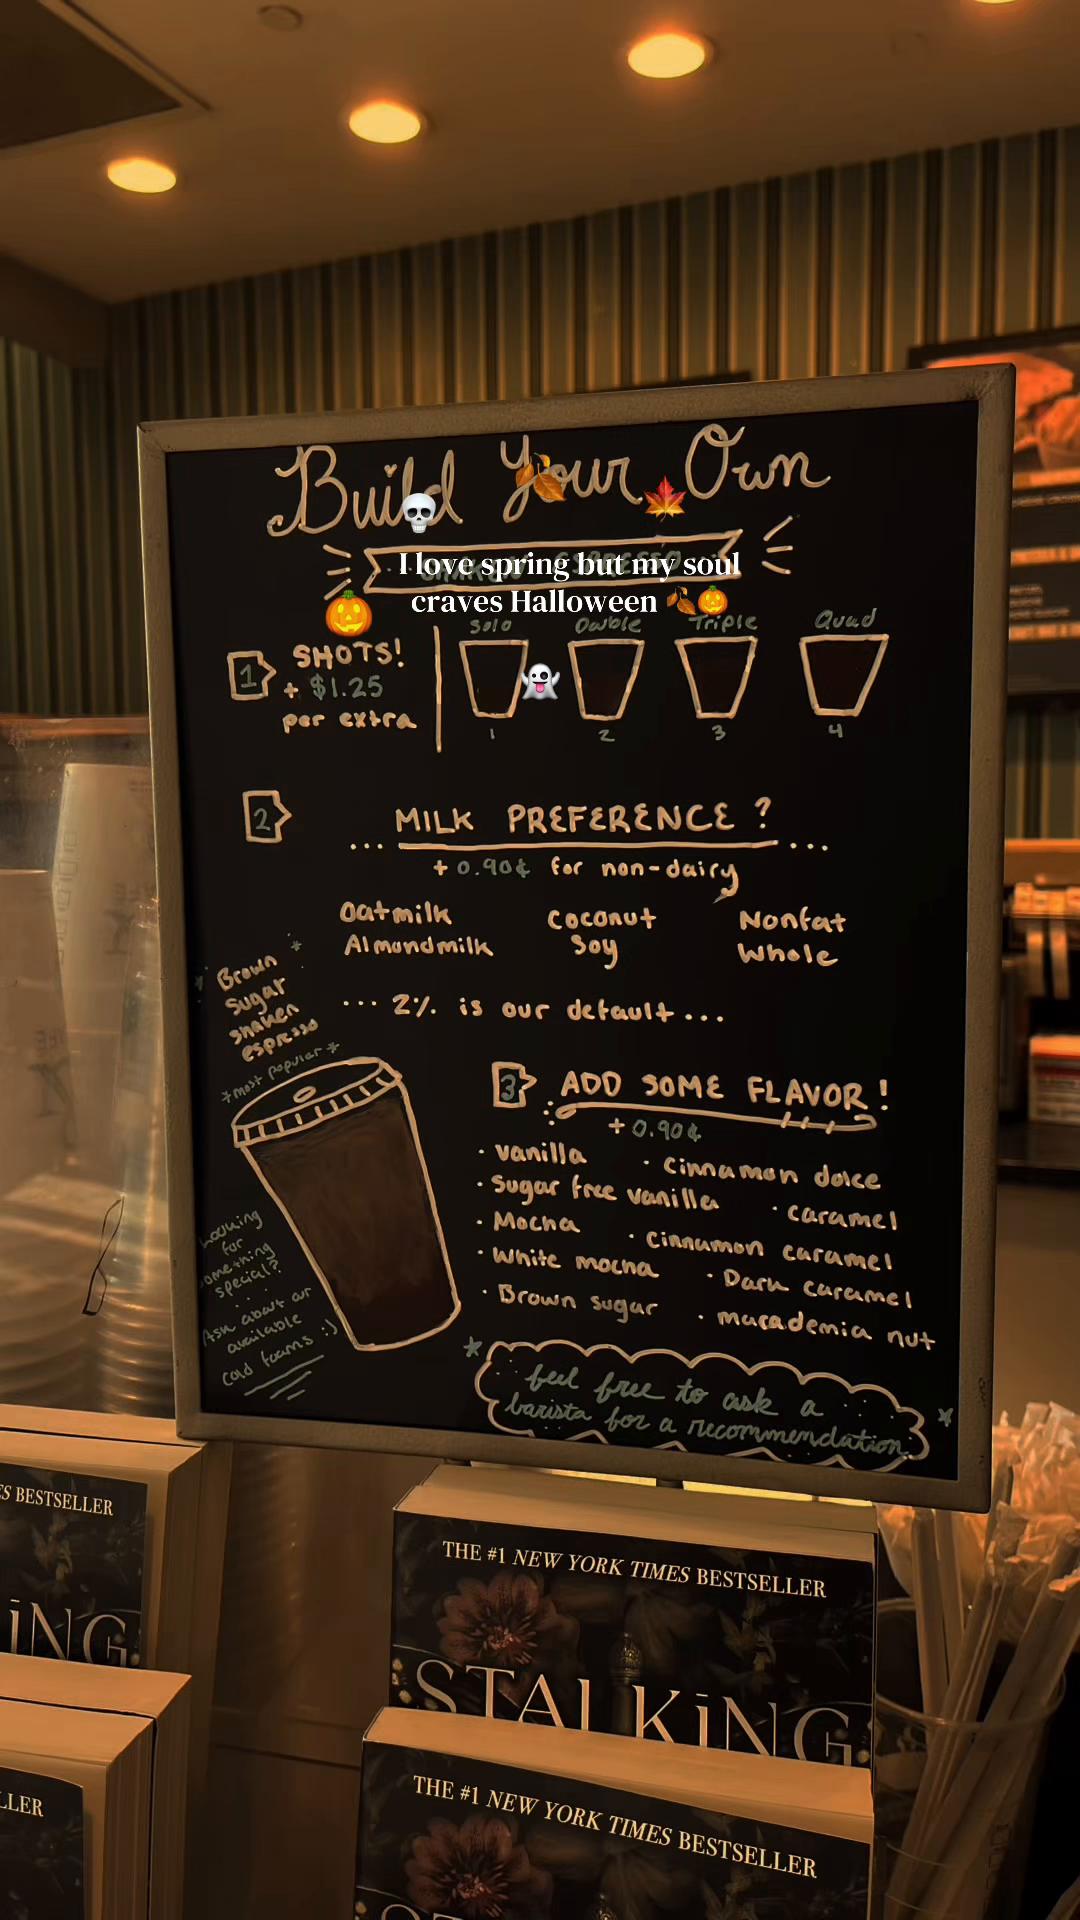 Build Your Own
I love spring but my soul
craves Halloween 🍂🎃
1 SHOTS!
+ $1.25
per extra
Solo Double Triple Quad
1 2 3 4
2 MILK PREFERENCE ?
+ 0.90¢ for non-dairy
Oatmilk Coconut Nonfat
Almondmilk Soy Whole
... 2% is our default...
Brown
Sugar
shaken
espresso
*most popular*
3 ADD SOME FLAVOR!
+ 0.90¢
· vanilla · Cinnamon dolce
· Sugar free vanilla · caramel
· Mocha · cinnamon caramel
· White mocha · Dark caramel
· Brown sugar · macademia nut
Looking
for
something
special?
Ask about our
available
cold foams :)
feel free to ask a
barista for a recommendation
S BESTSELLER
iNG
LLER
THE #1 NEW YORK TIMES BESTSELLER
STALKING
THE #1 NEW YORK TIMES BESTSELLER